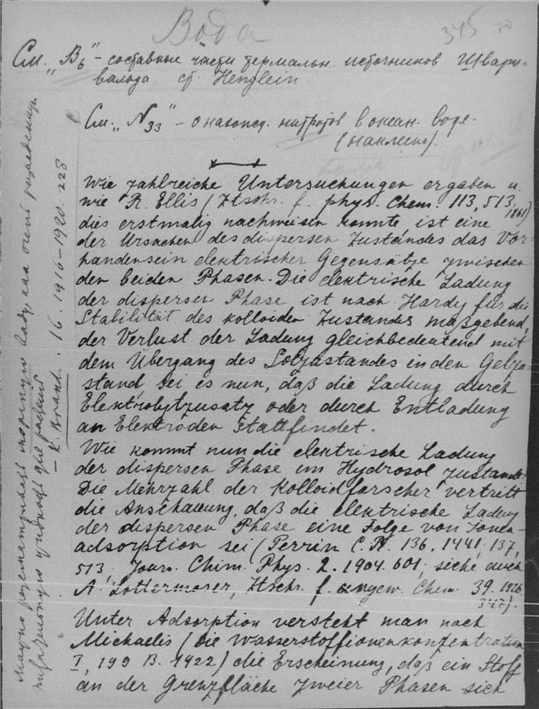 Вода
345
См. „В6“ - составные части термальн. источников Шварц-
вальда. ст. Henglein.
См. „N33“ - о накопл. нитратов в океан. воде.
(наклеено).
Wie zahlreiche Untersuchungen ergaben u.
wie R. Ellis (Ztschr. f. phys. Chem. 113, 513,
dies erstmalig nachweisen konnte, ist eine
der Ursachen des dispersen Zustandes das Vor-
handensein elektrischer Gegensätze zwischen
den beiden Phasen. Die elektrische Ladung
der dispersen Phase ist nach Hardy für die
Stabilität des kolloiden Zustandes maßgebend,
der Verlust der Ladung gleichbedeutend mit
dem Übergang des Solzustandes in den Gelzu-
stand sei es nun, daß die Ladung durch
Elektrolytzusatz oder durch Entladung
an Elektroden stattfindet.
Wie kommt nun die elektrische Ladung
der dispersen Phase im Hydrosol zustande.
Die Mehrzahl der Kolloidforscher vertritt
die Anschauung, daß die elektrische Ladung
der dispersen Phase eine Folge von Ionen-
adsorption sei (Perrin C. R. 136, 1441; 137,
513; Journ. Chim. Phys. 2. 1904. 601; siehe auch
A. Lottermoser, Ztschr. f. angew. Chem. 39. 1926,
347).
Unter Adsorption versteht man nach
Michaelis (Die Wasserstoffionenkonzentration
I, 199 B. 1922) die Erscheinung, daß ein Stoff
an der Grenzfläche zweier Phasen sich
можно рассматривать морскую воду как
жидкость для растений
- K. Brandt. 16. 1916-1920. 223